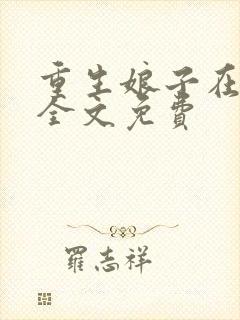 重生娘子在
全文免费
羅志祥